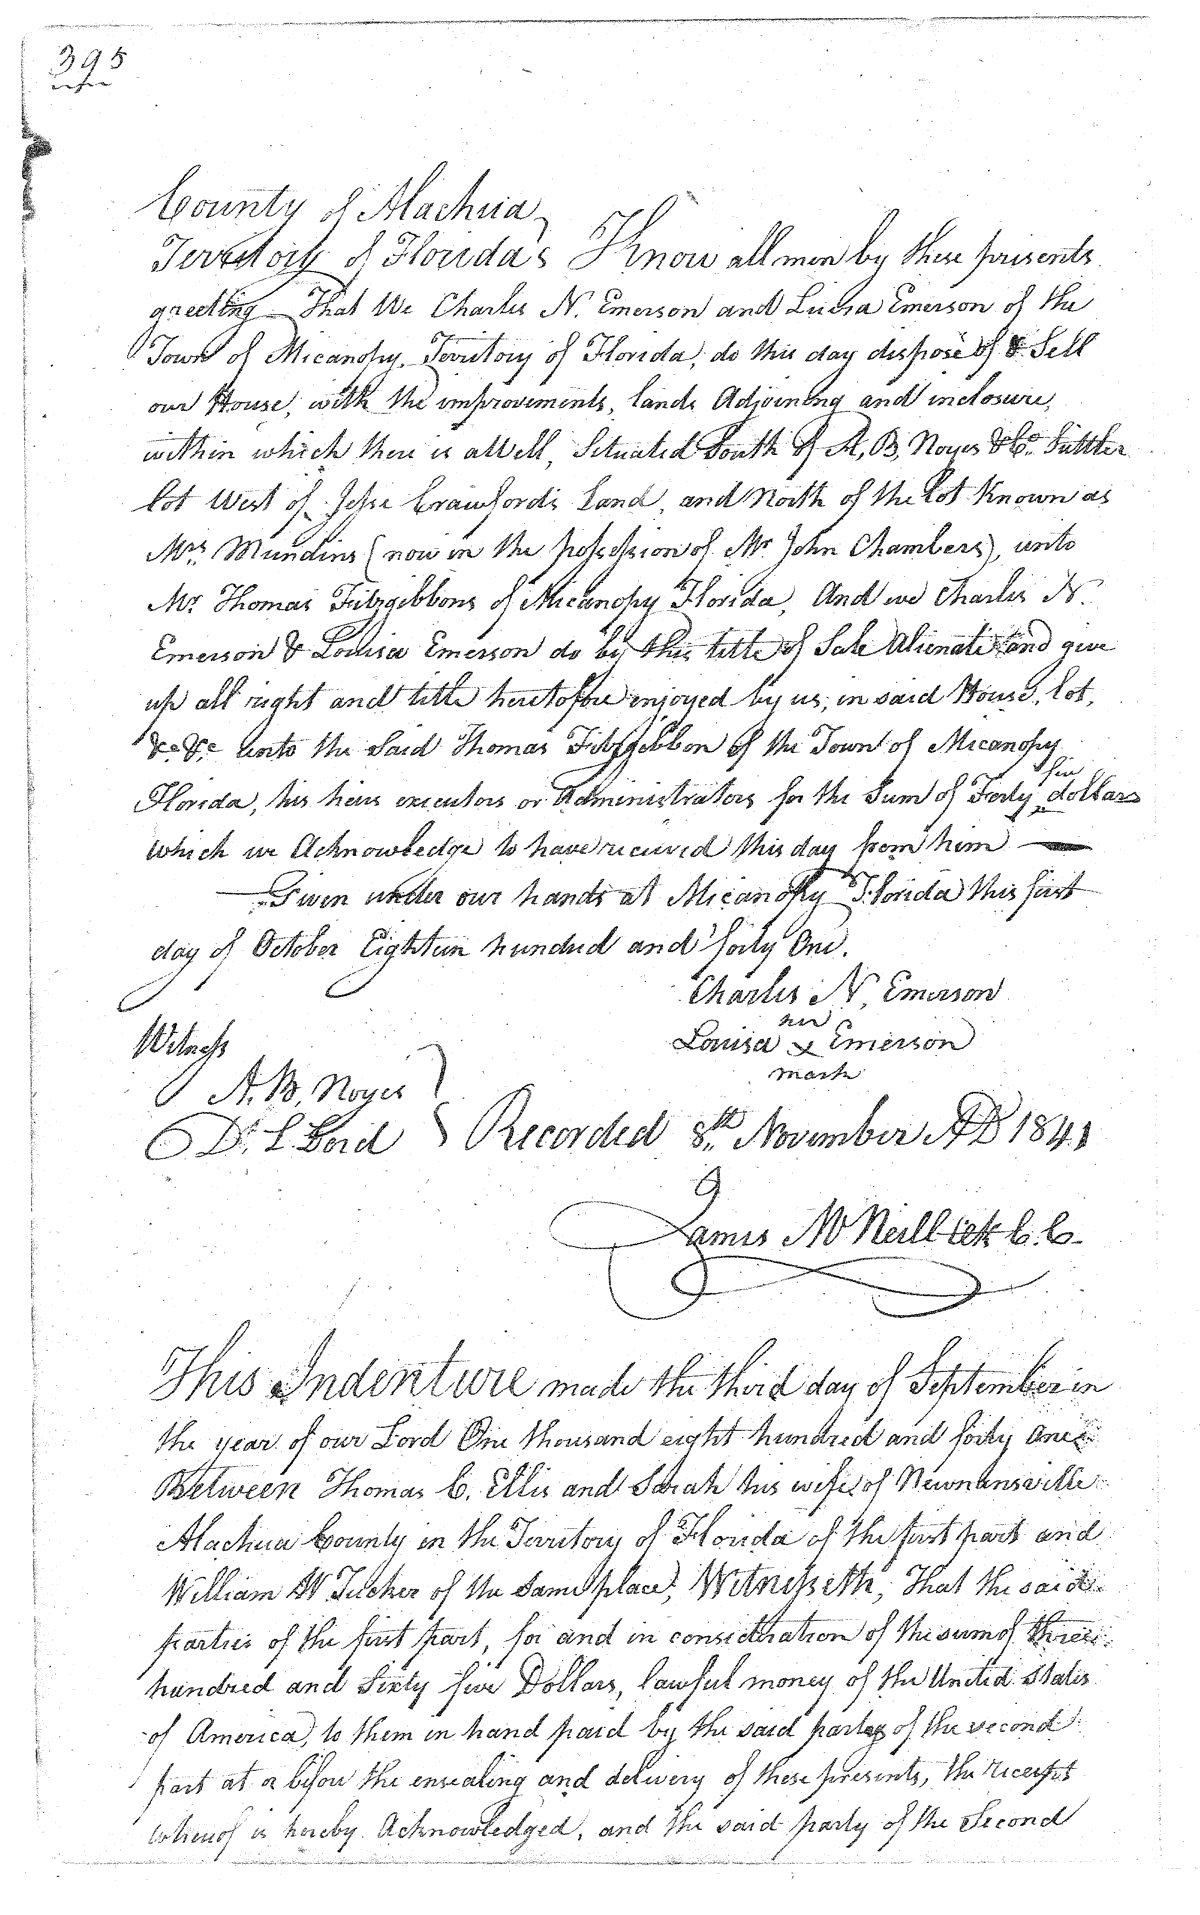 395
County of Alachua
Territory of Florida's Know all men by these presents
greeting That We Charles N. Emerson and Luisa Emerson of the
Town of Micanopy, Territory of Florida, do this day dispose of & Sell
our House, with the improvements, lands Adjoining and inclosure,
within which there is a Well, Situated South of A, B, Noyes & Co. Suttler
lot West of Jesse Crawford's Land, and North of the Lot Known as
Mrs Mundins (now in the possession of Mr John Chambers), unto
Mr Thomas Fitzgibbons of Micanopy Florida, And we Charles N.
Emerson & Louisa Emerson do by this title of Sale Alienate and give
up all right and title heretofore enjoyed by us, in said House, lot,
&c &c unto the Said Thomas Fitzgibbon of the Town of Micanopy
Florida, his heirs executors or Administrators for the Sum of Forty five dollars
which we Acknowledge to have received this day from him
Given under our hands at Micanopy Florida this first
day of October Eighteen hundred and forty One.
Charles N. Emerson
her
Louisa x Emerson
mark
Witness
A. B. Noyes
Dr. L. Lord
Recorded 8th November AD 1841
James McNeill Clk C. C.
This Indenture made the third day of September in
the year of our Lord One thousand eight hundred and forty one
Between Thomas C. Ellis and Sarah his wife of Newnansville
Alachua County in the Territory of Florida of the first part and
William W Tucker of the same place, Witnesseth, That the said
parties of the first part, for and in consideration of the sum of three
hundred and Sixty five Dollars, lawful money of the United States
of America, to them in hand paid by the said party of the second
part at a before the ensealing and delivery of these presents, the receipt
whereof is hereby Acknowledged, and the said party of the Second